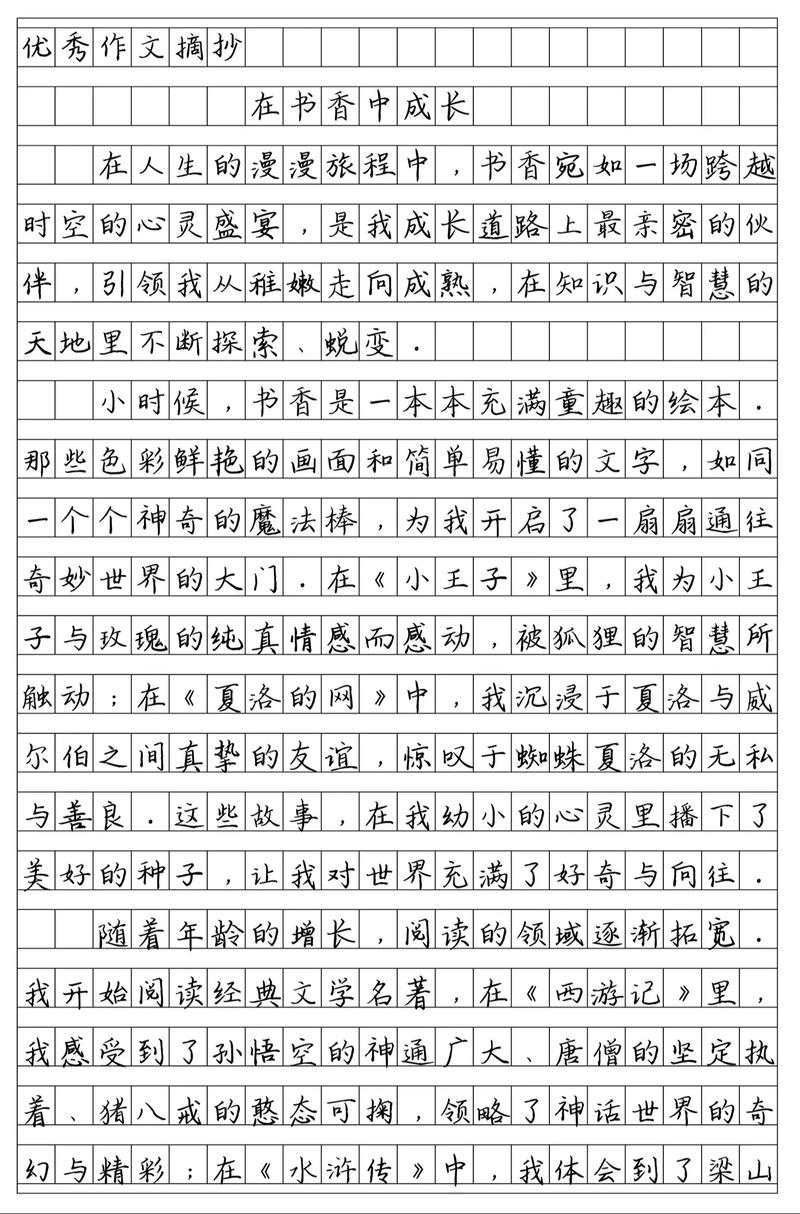 优秀作文摘抄
在书香中成长
在人生的漫漫旅程中，书香宛如一场跨越
时空的心灵盛宴，是我成长道路上最亲密的伙
伴，引领我从稚嫩走向成熟，在知识与智慧的
天地里不断探索、蜕变．
小时候，书香是一本本充满童趣的绘本．
那些色彩鲜艳的画面和简单易懂的文字，如同
一个个神奇的魔法棒，为我开启了一扇扇通往
奇妙世界的大门．在《小王子》里，我为小王
子与玫瑰的纯真情感而感动，被狐狸的智慧所
触动；在《夏洛的网》中，我沉浸于夏洛与威
尔伯之间真挚的友谊，惊叹于蜘蛛夏洛的无私
与善良．这些故事，在我幼小的心灵里播下了
美好的种子，让我对世界充满了好奇与向往．
随着年龄的增长，阅读的领域逐渐拓宽．
我开始阅读经典文学名著，在《西游记》里，
我感受到了孙悟空的神通广大、唐僧的坚定执
着、猪八戒的憨态可掬，领略了神话世界的奇
幻与精彩；在《水浒传》中，我体会到了梁山